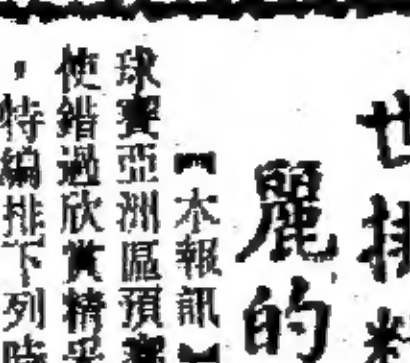 世排
麗的
【本報訊】
球賽亞洲區預賽
使錯過欣賞精采
，特編排下列時